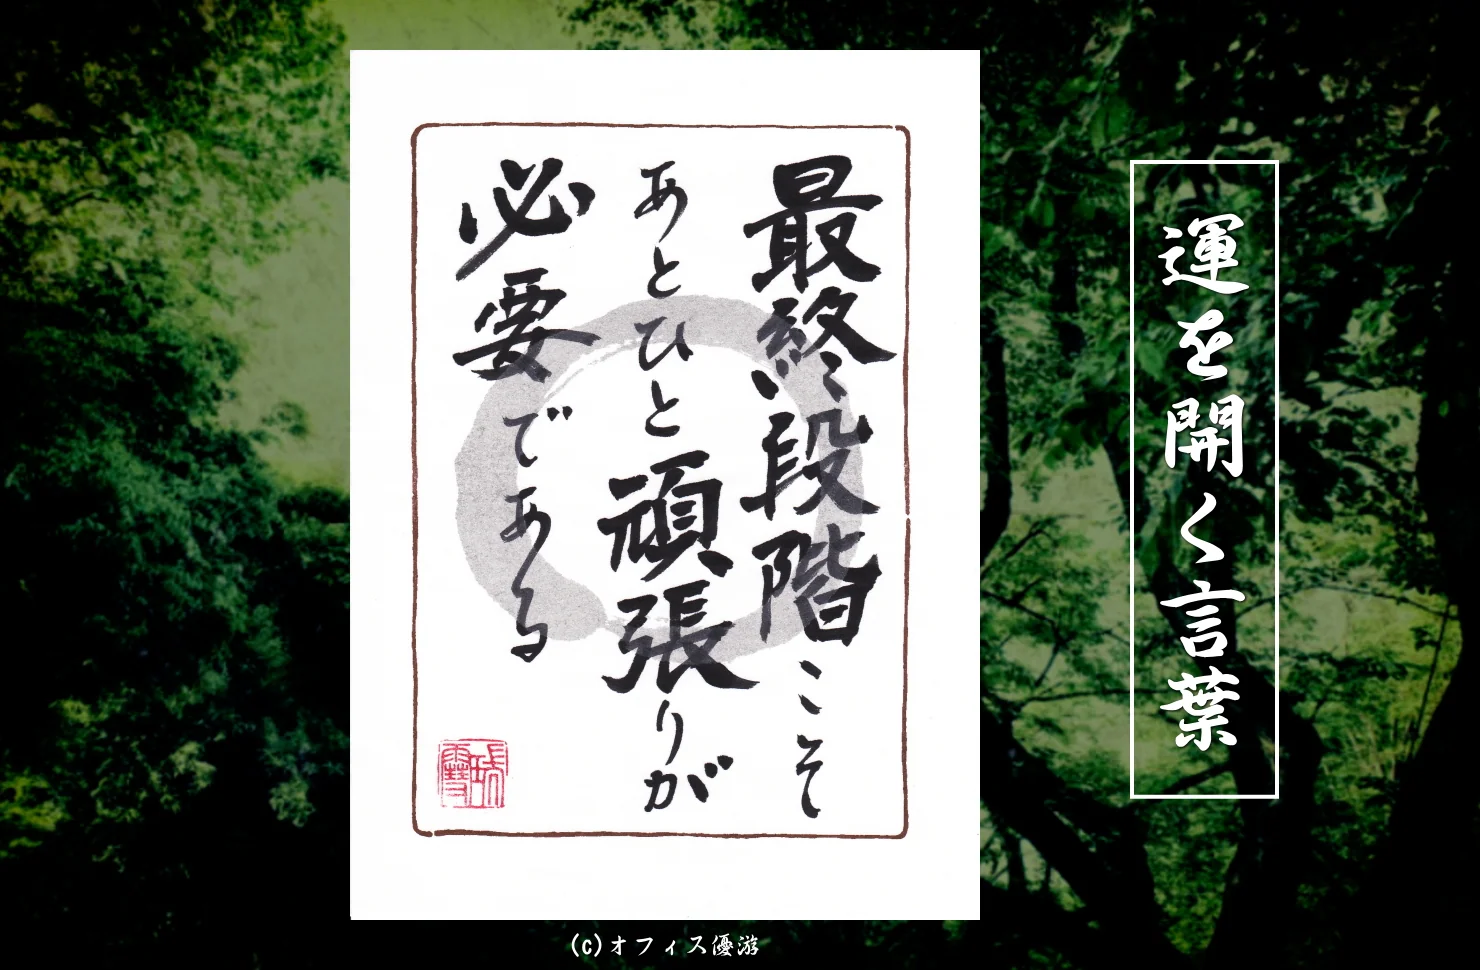 運を開く言葉
最終段階こそ
あとひと頑張りが
必要である
(c)オフィス優游